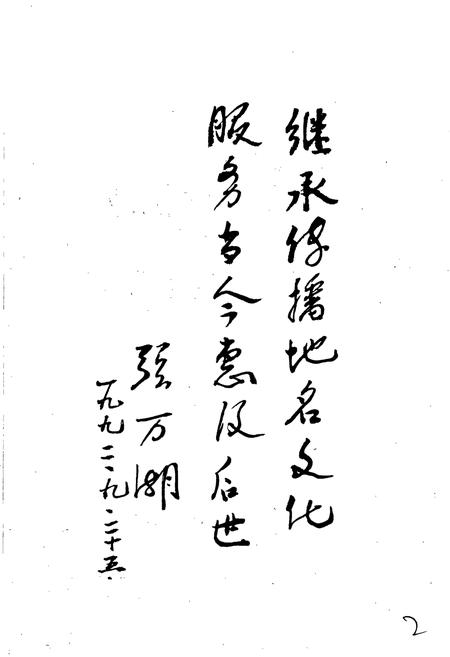 继承传播地名文化
服务当今惠及后世
张万潮
一九九二·九·二十五·
2